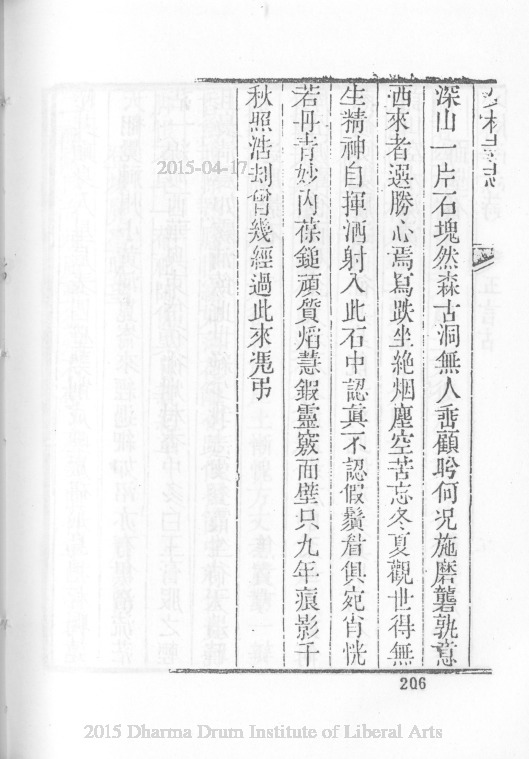 少林寺志
深山一片石塊然森古洞無人垂顧盻何况施磨礱孰意
西來者選勝心焉寫趺坐絶烟塵空苦忘冬夏觀世得無
生精神自揮洒射入此石中認真不認假鬚眉俱宛肖恍
若丹青妙內葆鎚頑質焰慧鍜靈竅面壁只九年痕影千
秋照浩刼曾幾經過此來凴弔
206
2015-04-17
2015 Dharma Drum Institute of Liberal Arts